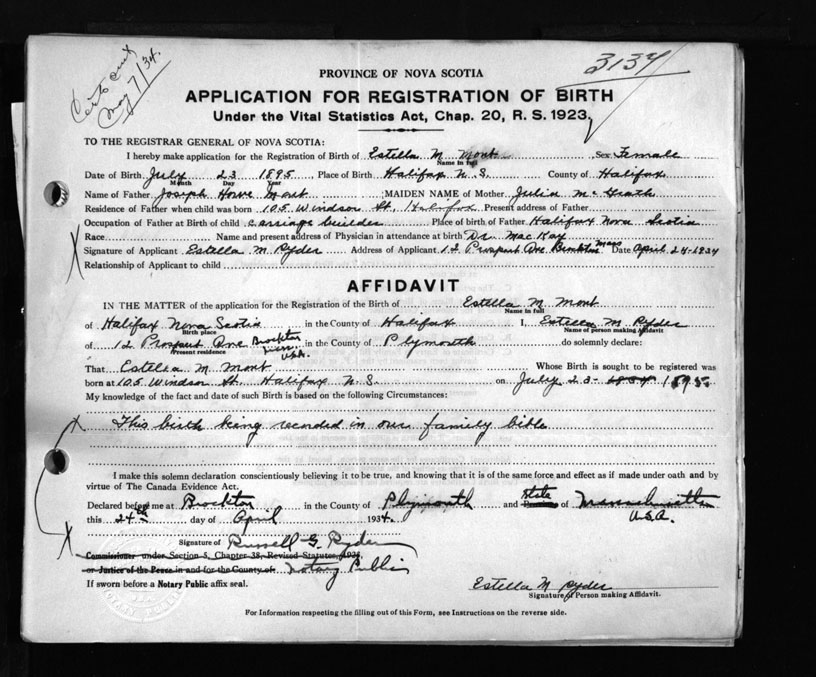 Cert sent
May 7/34.
3134
PROVINCE OF NOVA SCOTIA
APPLICATION FOR REGISTRATION OF BIRTH
Under the Vital Statistics Act, Chap. 20, R. S. 1923.
TO THE REGISTRAR GENERAL OF NOVA SCOTIA:
I hereby make application for the Registration of Birth of Estella M Mont Sex Female
Name in full
Date of Birth July 23 1895 Place of Birth Halifax N. S. County of Halifax
Month Day Year
Name of Father Joseph Howe Mont MAIDEN NAME of Mother Julia McGrath
Residence of Father when child was born 105 Windsor St. Halifax Present address of Father
Occupation of Father at Birth of child Carriage builder Place of birth of Father Halifax Nova Scotia
Race Name and present address of Physician in attendance at birth Dr MacKay
Signature of Applicant Estella M. Ryder Address of Applicant 12 Prospect Ave Brockton Mass Date April 24-1934
Relationship of Applicant to child
AFFIDAVIT
IN THE MATTER of the application for the Registration of the Birth of Estella M Mont
Name in full
of Halifax Nova Scotia in the County of Halifax I, Estella M Ryder
Birth place Name of person making Affidavit
of 12 Prospect Ave Brockton Mass. U.S.A. in the County of Plymouth do solemnly declare:
Present residence
That Estella M. Mont Whose Birth is sought to be registered was
born at 105 Windsor St. Halifax N. S. on July 23- 1895
My knowledge of the fact and date of such Birth is based on the following Circumstances:
This birth being recorded in our family bible
I make this solemn declaration conscientiously believing it to be true, and knowing that it is of the same force and effect as if made under oath and by
virtue of The Canada Evidence Act.
Declared before me at Brockton in the County of Plymouth and State of Massachusetts
this 24th day of April 1934. U.S.A.
Signature of Russell G. Ryder
Commissioner under Section 5, Chapter 38, Revised Statutes, 1923,
or Justice of the Peace in and for the County of Notary Public
If sworn before a Notary Public affix seal.
Estella M Ryder
Signature of Person making Affidavit.
For Information respecting the filling out of this Form, see Instructions on the reverse side.